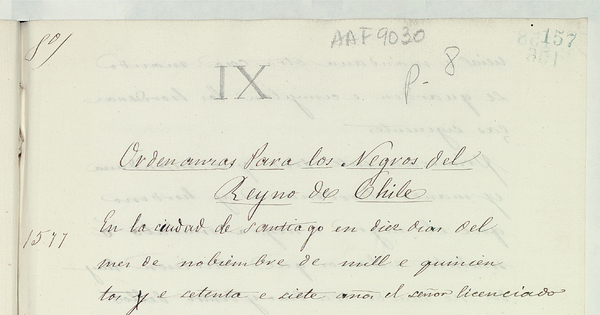 801
AAF9030
157
P. 8
XI
Ordenanzas Para los Negros del
Reyno de Chile
1577
En la ciudad de santiago en diez dias del
mes de nobiembre de mill e quinien
tos y e setenta e siete años el señor licenciado